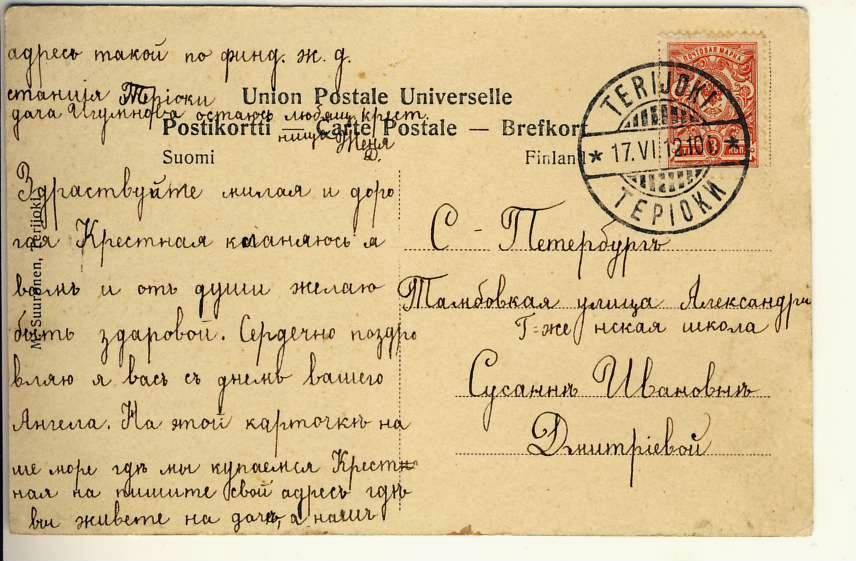 адресъ такой по финд. ж. д.
станція Теріоки
дача Игумнова остаюсь любящ. крест.
ница Женя
Д.
Union Postale Universelle
Postikortti — Carte Postale — Brefkort
Suomi
Finland
TERIJOKI
* 17. VI. 12.10 *
ТЕРІОКИ
ПОЧТОВАЯ МАРКА
M. Suuronen, Terijoki.
Здраствуйте милая и доро
гая Крестная кланяюсь я
вамъ и отъ души желаю
быть здаровой. Сердечно поздро
вляю я васъ съ днемъ вашего
Ангела. На этой карточкѣ на
ше море гдѣ мы купаемся Крестн
ная на пишите свой адресъ гдѣ
вы живете на дачѣ, а нашъ
С-Петербургъ
Тамбовкая улица Александри
Г=же нская школа
Сусаннѣ Ивановнѣ
Дмитріевой